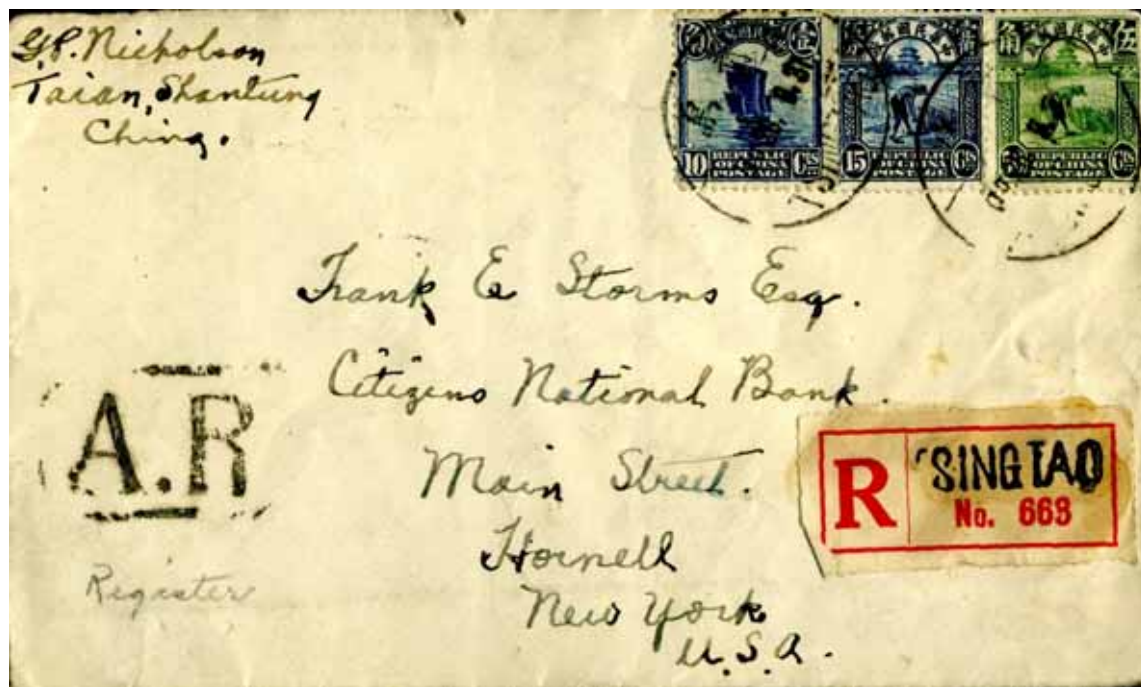 G.P. Nicholson
Taian, Shantung
China.
10 Cts
REPUBLIC
OF CHINA
POSTAGE
15 Cts
REPUBLIC
OF CHINA
POSTAGE
REPUBLIC
OF CHINA
POSTAGE
Frank E Storms Esq.
Citizens National Bank.
Main Street.
Hornell
New York
U.S.A.
A.R
Register
R
TSINGTAO
No. 663